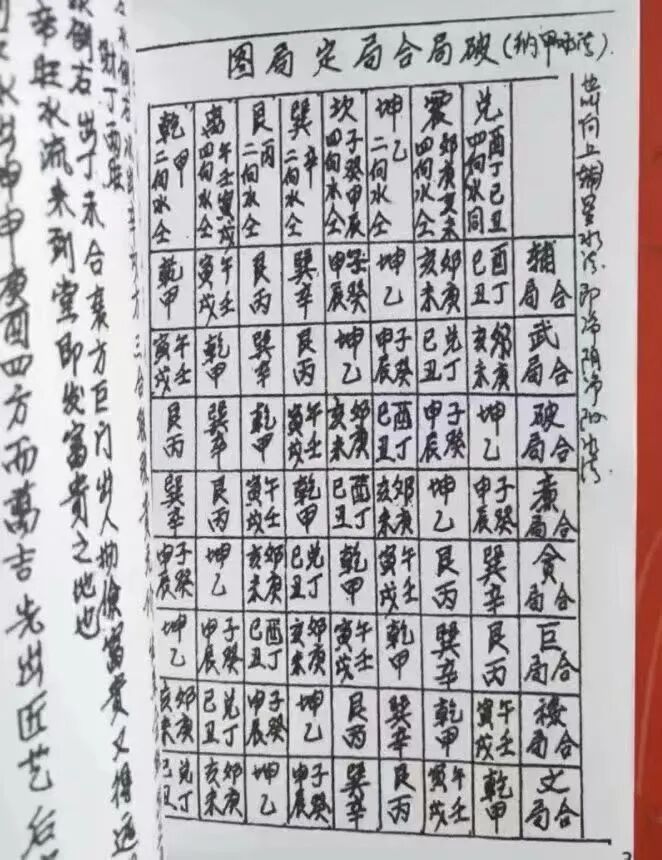 破局合局定局图(纳甲水法)
此向上辅星水法即净阴净阳水法
兑 酉丁巳丑 四向水同
震 卯庚亥未 四向水仝
坤 乙 二向水仝
坎 子癸申辰 四向水仝
巽 辛 二向水仝
艮 丙 二向水仝
离 午壬寅戌 四向水仝
乾 甲 二向水仝
合辅局 酉丁巳丑 卯庚亥未 坤乙 子癸申辰 巽辛 艮丙 午壬寅戌 乾甲
合武局 卯庚亥未 兑丁巳丑 子癸申辰 坤乙 艮丙 巽辛 乾甲 午壬寅戌
合破局 坤乙 子癸申辰 酉丁巳丑 卯庚亥未 午壬寅戌 乾甲 巽辛 艮丙
合廉局 子癸申辰 坤乙 卯庚亥未 酉丁巳丑 乾甲 午壬寅戌 艮丙 巽辛
合贪局 巽辛 艮丙 午壬寅戌 乾甲 兑丁巳丑 卯庚亥未 坤乙 子癸申辰
合巨局 艮丙 巽辛 乾甲 午壬寅戌 卯庚亥未 酉丁巳丑 子癸申辰 坤乙
合禄局 午壬寅戌 乾甲 巽辛 艮丙 坤乙 子癸申辰 兑丁巳丑 卯庚亥未
合文局 乾甲 午壬寅戌 艮丙 巽辛 子癸申辰 坤乙 卯庚亥未 兑丁巳丑
财丁两旺
倒右出丁未合襄方巨门出人勤俭富貴又得
旺水流来到堂即发富貴之地也
水出坤申庚酉四方而萬吉先出匠艺后